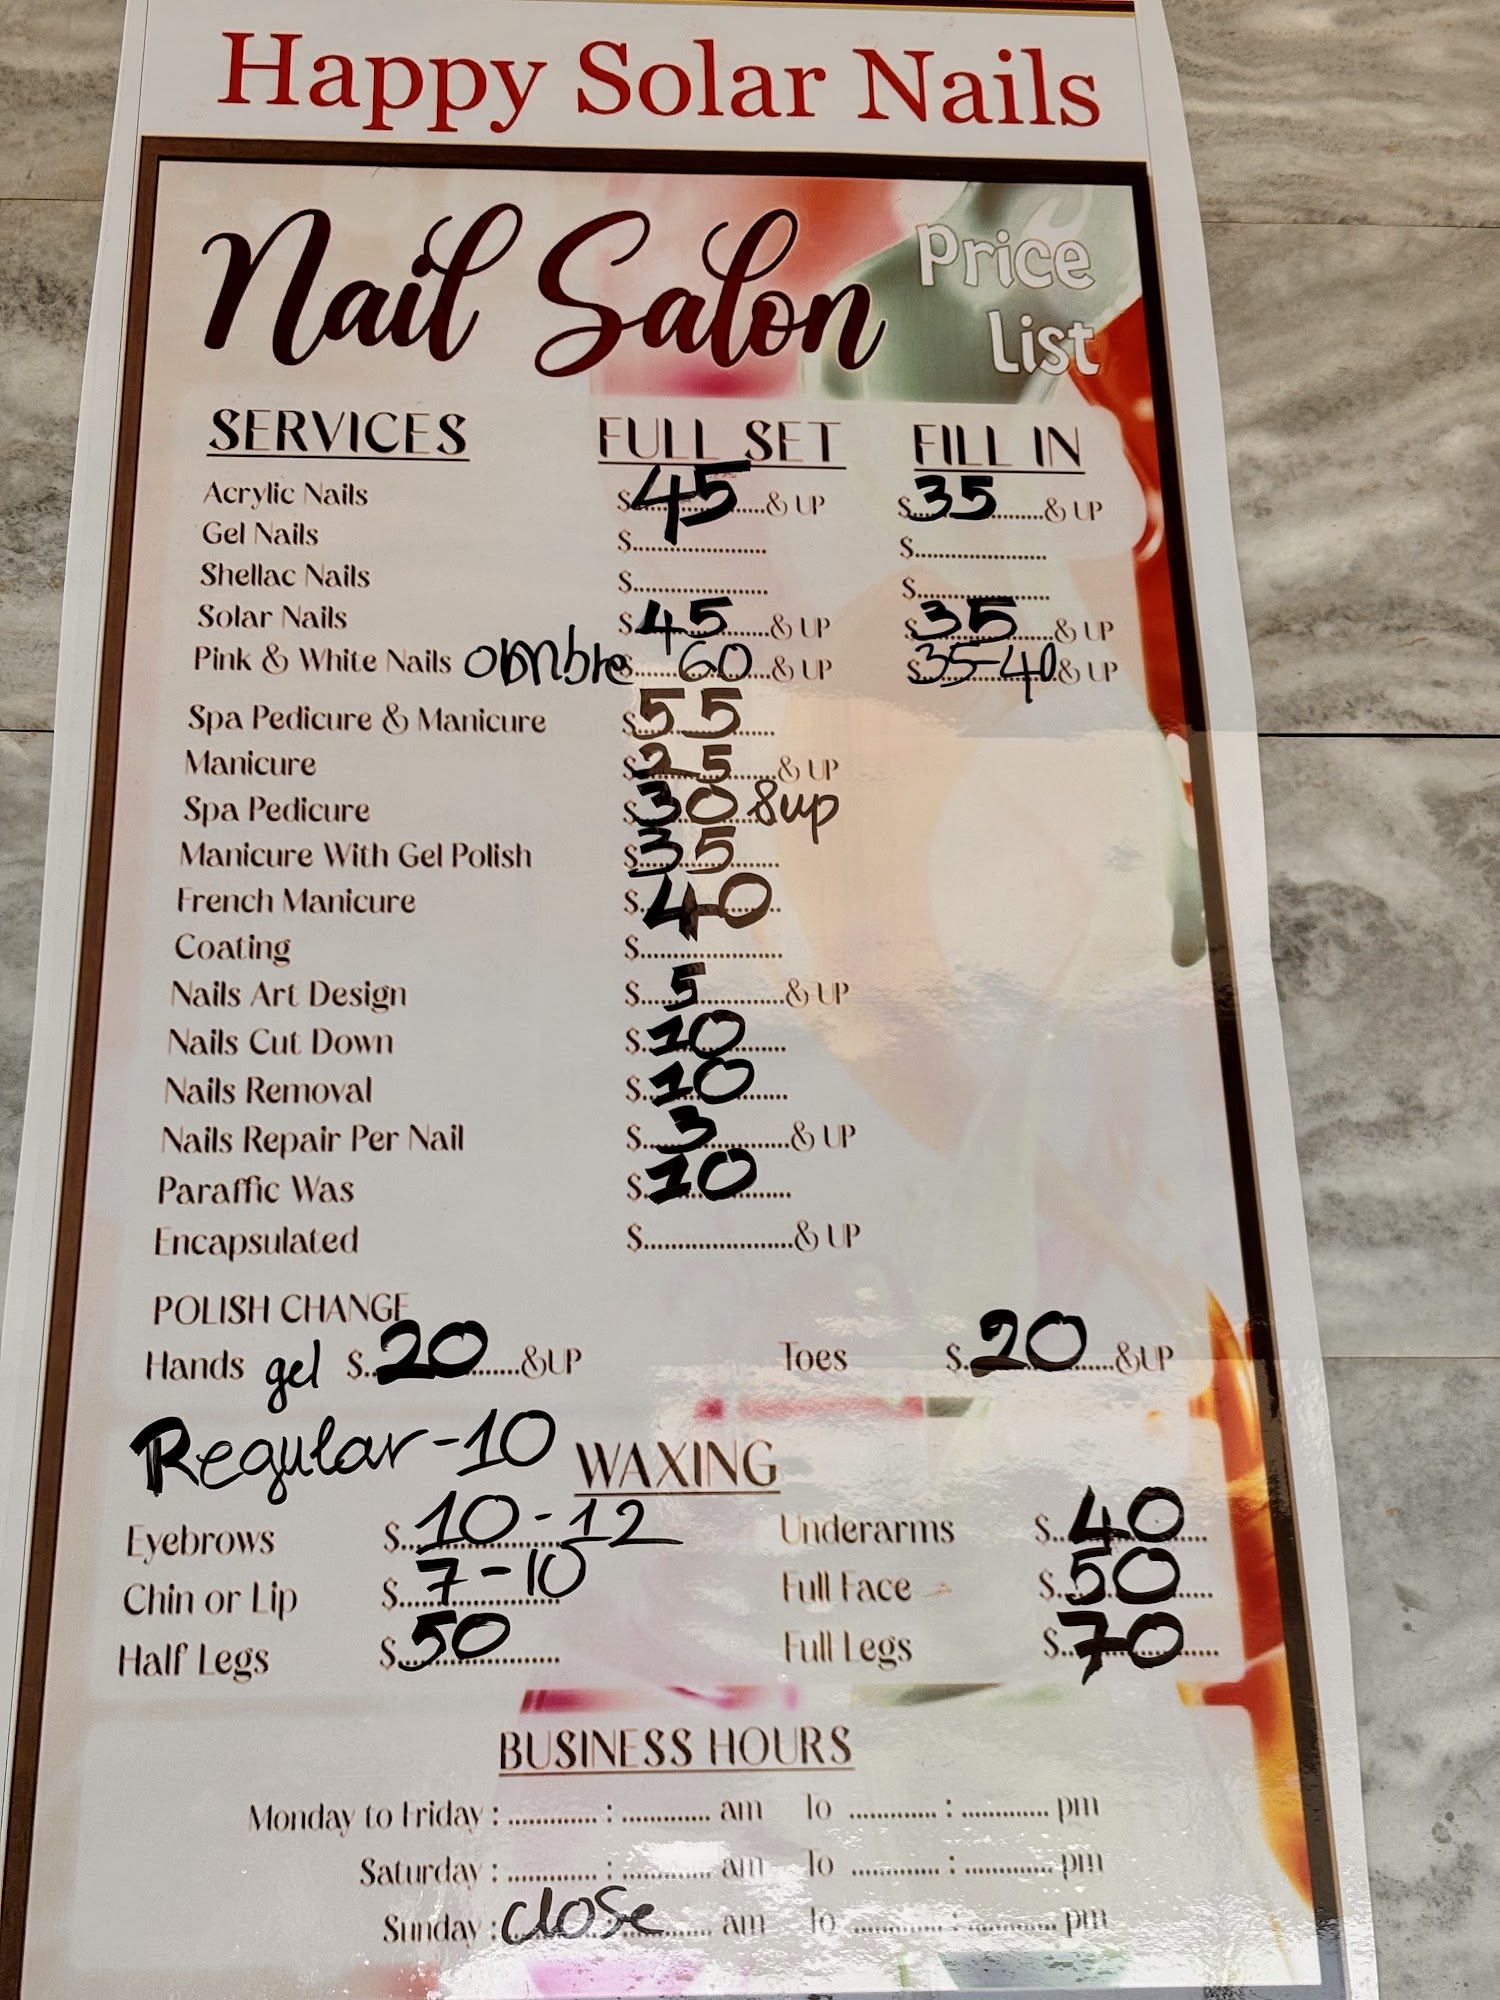 Happy Solar Nails
Nail Salon Price List
SERVICES FULL SET FILL IN
Acrylic Nails $45.....& UP $35.....& UP
Gel Nails $.................... $....................
Shellac Nails $.................... $....................
Solar Nails $45.....& UP $35.....& UP
Pink & White Nails ombre $60...& UP $35-40& UP
Spa Pedicure & Manicure $55.....
Manicure $25.....& UP
Spa Pedicure $30 & up
Manicure With Gel Polish $35.....
French Manicure $40
Coating $....................
Nails Art Design $5..........& UP
Nails Cut Down $10.....
Nails Removal $10.....
Nails Repair Per Nail $3..........& UP
Paraffic Was $10.....
Encapsulated $....................& UP
POLISH CHANGE
Hands gel $20.....&UP Toes $20.....&UP
Regular-10
WAXING
Eyebrows $10-12 Underarms $40
Chin or Lip $7-10 Full Face $50
Half Legs $50 Full Legs $70
BUSINESS HOURS
Monday to Friday : ............ : ............ am To ............ : ............ pm
Saturday : ............ : ............ am To ............ : ............ pm
Sunday : close am To ............ : ............ pm